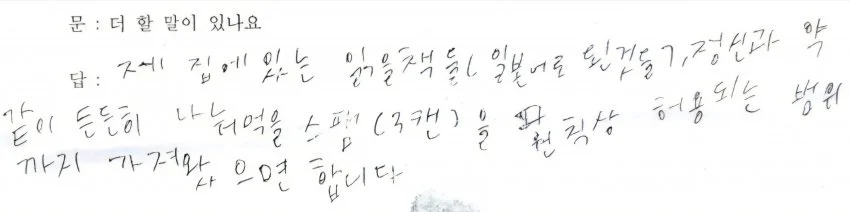 문 : 더 할 말이 있나요
답 : 제 집에 있는 읽을책 들( 일본어로 된것들), 정신과 약
같이 든든히 나눠먹을 스팸 (3캔) 을 원칙상 허용되는 범위
까지 가져와 으면 합니다